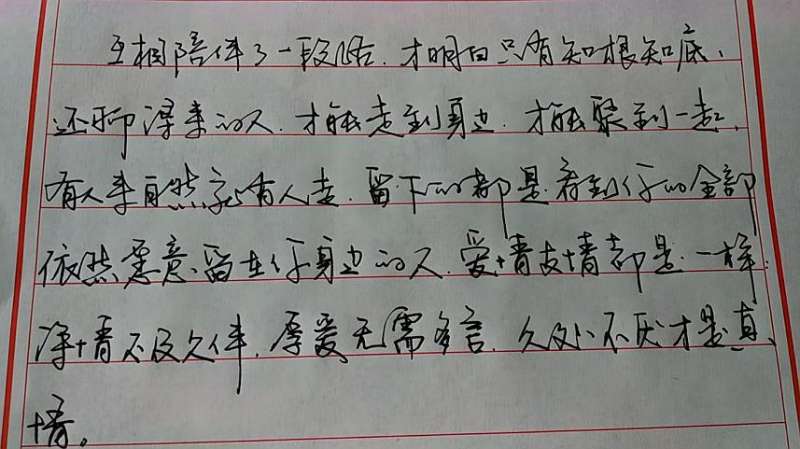 互相陪伴了一段路，才明白只有知根知底，
还聊得来的人，才能走到身边，才能聚到一起，
有人来自然就有人走，留下的都是看到你的全部
依然愿意留在你身边的人，爱情友情都是一样，
深情不及久伴，厚爱无需多言，久处不厌才是真
情。